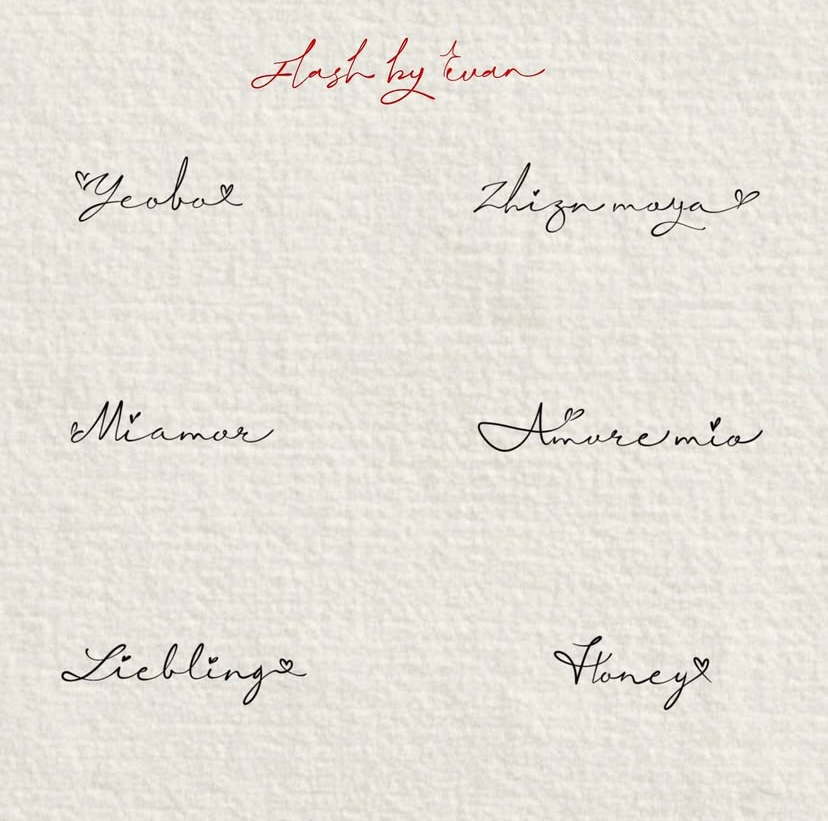 Flash by Evan
Yeobo
Zhizn moya
Mi amor
Amore mio
Liebling
Honey